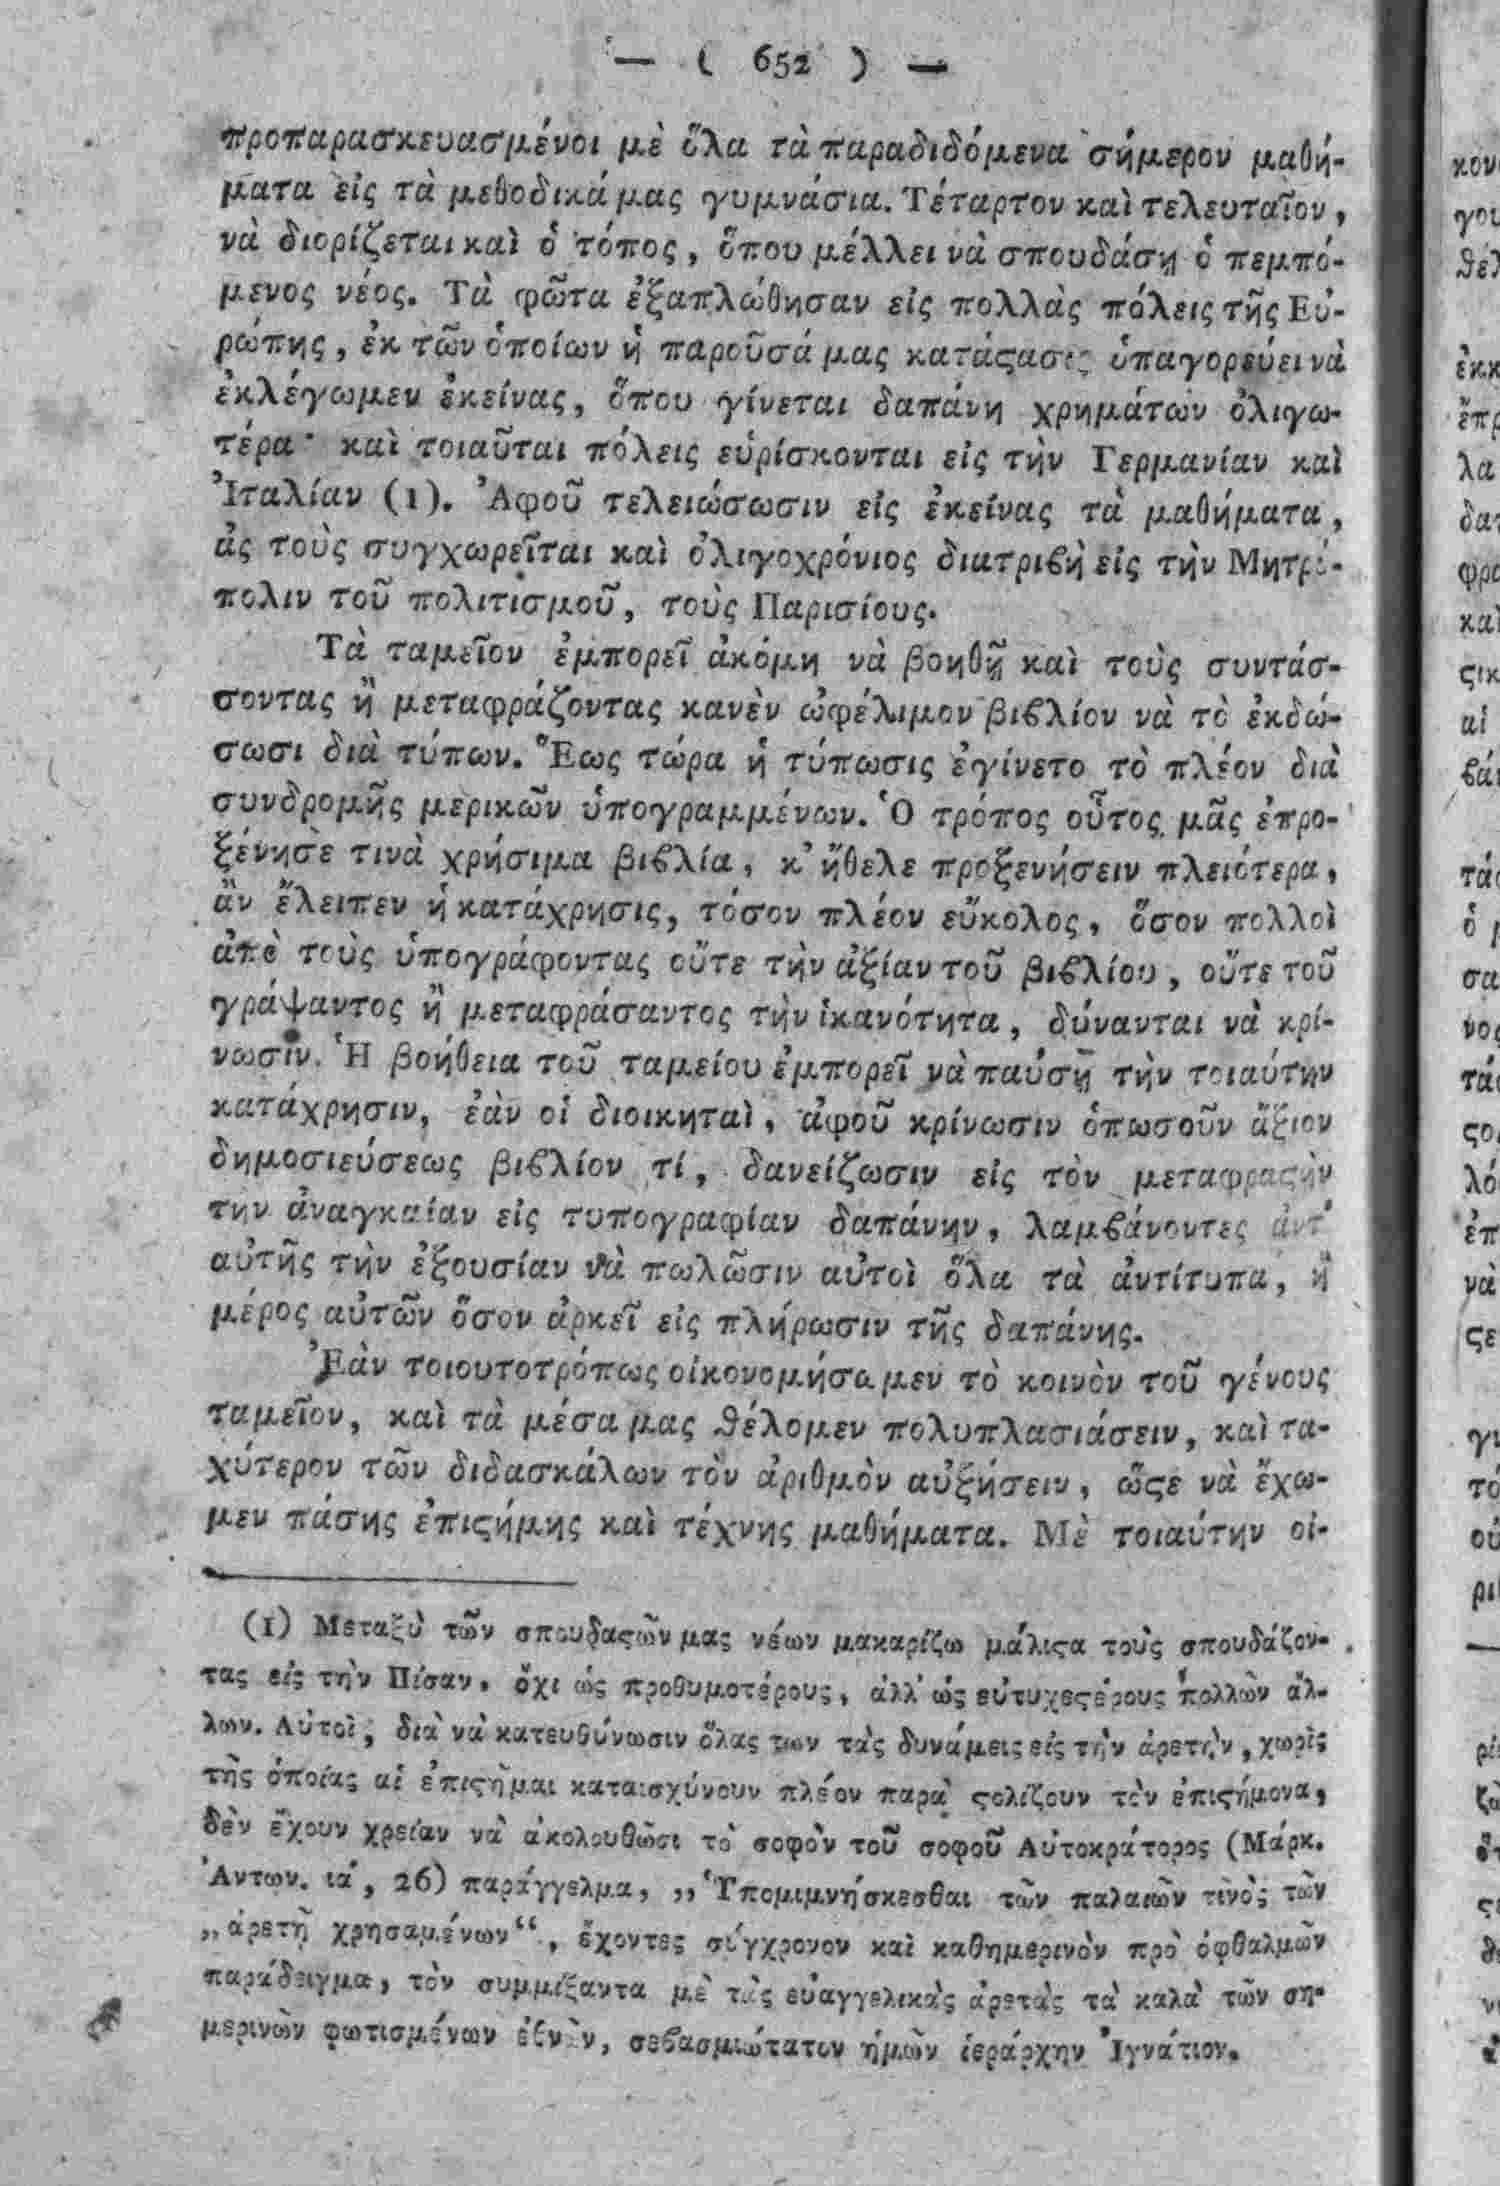 — ( 652 ) —
προπαρασκευασμένοι μὲ ὅλα τὰ παραδιδόμενα σήμερον μαθή-
ματα εἰς τὰ μεθοδικά μας γυμνάσια. Τέταρτον καὶ τελευταῖον,
νὰ διορίζεται καὶ ὁ τόπος, ὅπου μέλλει νὰ σπουδάσῃ ὁ πεμπό-
μενος νέος. Τὰ φῶτα ἐξαπλώθησαν εἰς πολλὰς πόλεις τῆς Εὐ-
ρώπης, ἐκ τῶν ὁποίων ἡ παροῦσά μας κατάϛασις ὑπαγορεύει νὰ
ἐκλέγωμεν ἐκείνας, ὅπου γίνεται δαπάνη χρημάτων ὀλιγω-
τέρα· καὶ τοιαῦται πόλεις εὑρίσκονται εἰς τὴν Γερμανίαν καὶ
Ἰταλίαν (1). Ἀφοῦ τελειώσωσιν εἰς ἐκείνας τὰ μαθήματα,
ἀς τοὺς συγχωρεῖται καὶ ὀλιγοχρόνιος διατριϐὴ εἰς τὴν Μητρό-
πολιν τοῦ πολιτισμοῦ, τοὺς Παρισίους.
Τὰ ταμεῖον ἐμπορεῖ ἀκόμη νὰ βοηθῇ καὶ τοὺς συντάσ-
σοντας ἢ μεταφράζοντας κανὲν ὠφέλιμον βιϐλίον νὰ τὸ ἐκδώ-
σωσι διὰ τύπων. Ἕως τώρα ἡ τύπωσις ἐγίνετο τὸ πλέον διὰ
συνδρομῆς μερικῶν ὑπογραμμένων. Ὁ τρόπος οὗτος μᾶς ἐπρο-
ξένησε τινὰ χρήσιμα βιϐλία, κ' ἤθελε προξενήσειν πλειότερα,
ἂν ἔλειπεν ἡ κατάχρησις, τόσον πλέον εὔκολος, ὅσον πολλοὶ
ἀπὸ τοὺς ὑπογράφοντας οὔτε τὴν ἀξίαν τοῦ βιϐλίου, οὔτε τοῦ
γράψαντος ἢ μεταφράσαντος τὴν ἱκανότητα, δύνανται νὰ κρί-
νωσιν. Ἡ βοήθεια τοῦ ταμείου ἐμπορεῖ νὰ παύσῃ τὴν τοιαύτην
κατάχρησιν, ἐὰν οἱ διοικηταὶ, ἀφοῦ κρίνωσιν ὁπωσοῦν ἄξιον
δημοσιεύσεως βιϐλίον τί, δανείζωσιν εἰς τὸν μεταφραϛὴν
την ἀναγκαίαν εἰς τυπογραφίαν δαπάνην, λαμϐάνοντες ἀντ'
αὐτῆς τὴν ἐξουσίαν νὰ πωλῶσιν αὐτοὶ ὅλα τὰ ἀντίτυπα, ἢ
μέρος αὐτῶν ὅσον ἀρκεῖ εἰς πλήρωσιν τῆς δαπάνης.
Ἐὰν τοιουτοτρόπως οἰκονομήσαμεν τὸ κοινὸν τοῦ γένους
ταμεῖον, καὶ τὰ μέσα μας ϑέλομεν πολυπλασιάσειν, καὶ τα-
χύτερον τῶν διδασκάλων τὸν ἀριθμὸν αὐξήσειν, ὥϛε νὰ ἔχω-
μεν πάσης ἐπιϛήμης καὶ τέχνης μαθήματα. Μὲ τοιαύτην οἰ-
(1) Μεταξὺ τῶν σπουδαϛῶν μας νέων μακαρίζω μάλιϛα τοὺς σπουδάζον-
τας εἰς τὴν Πίσαν, ὄχι ὡς προθυμοτέρους, ἀλλ' ὡς εὐτυχεϛέρους πολλῶν ἄλ-
λων. Αὐτοὶ, διὰ νὰ κατευθύνωσιν ὅλας των τὰς δυνάμεις εἰς τὴν ἀρετὴν, χωρὶς
τῆς ὁποίας αἱ ἐπιϛῆμαι καταισχύνουν πλέον παρὰ ϛολίζουν τὸν ἐπιϛήμονα,
δὲν ἔχουν χρείαν νὰ ἀκολουθῶσι τὸ σοφὸν τοῦ σοφοῦ Αὐτοκράτορος (Μάρκ.
Ἀντων. ια', 26) παράγγελμα, „Ὑπομιμνήσκεσθαι τῶν παλαιῶν τινὸς τῶν
„ἀρετῇ χρησαμένων“, ἔχοντες σύγχρονον καὶ καθημερινὸν πρὸ ὀφθαλμῶν
παράδειγμα, τὸν συμμίξαντα μὲ τὰς εὐαγγελικὰς ἀρετὰς τὰ καλὰ τῶν ση-
μερινῶν φωτισμένων ἐθνῶν, σεϐασμιώτατον ἡμῶν ἱεράρχην Ἰγνάτιον.